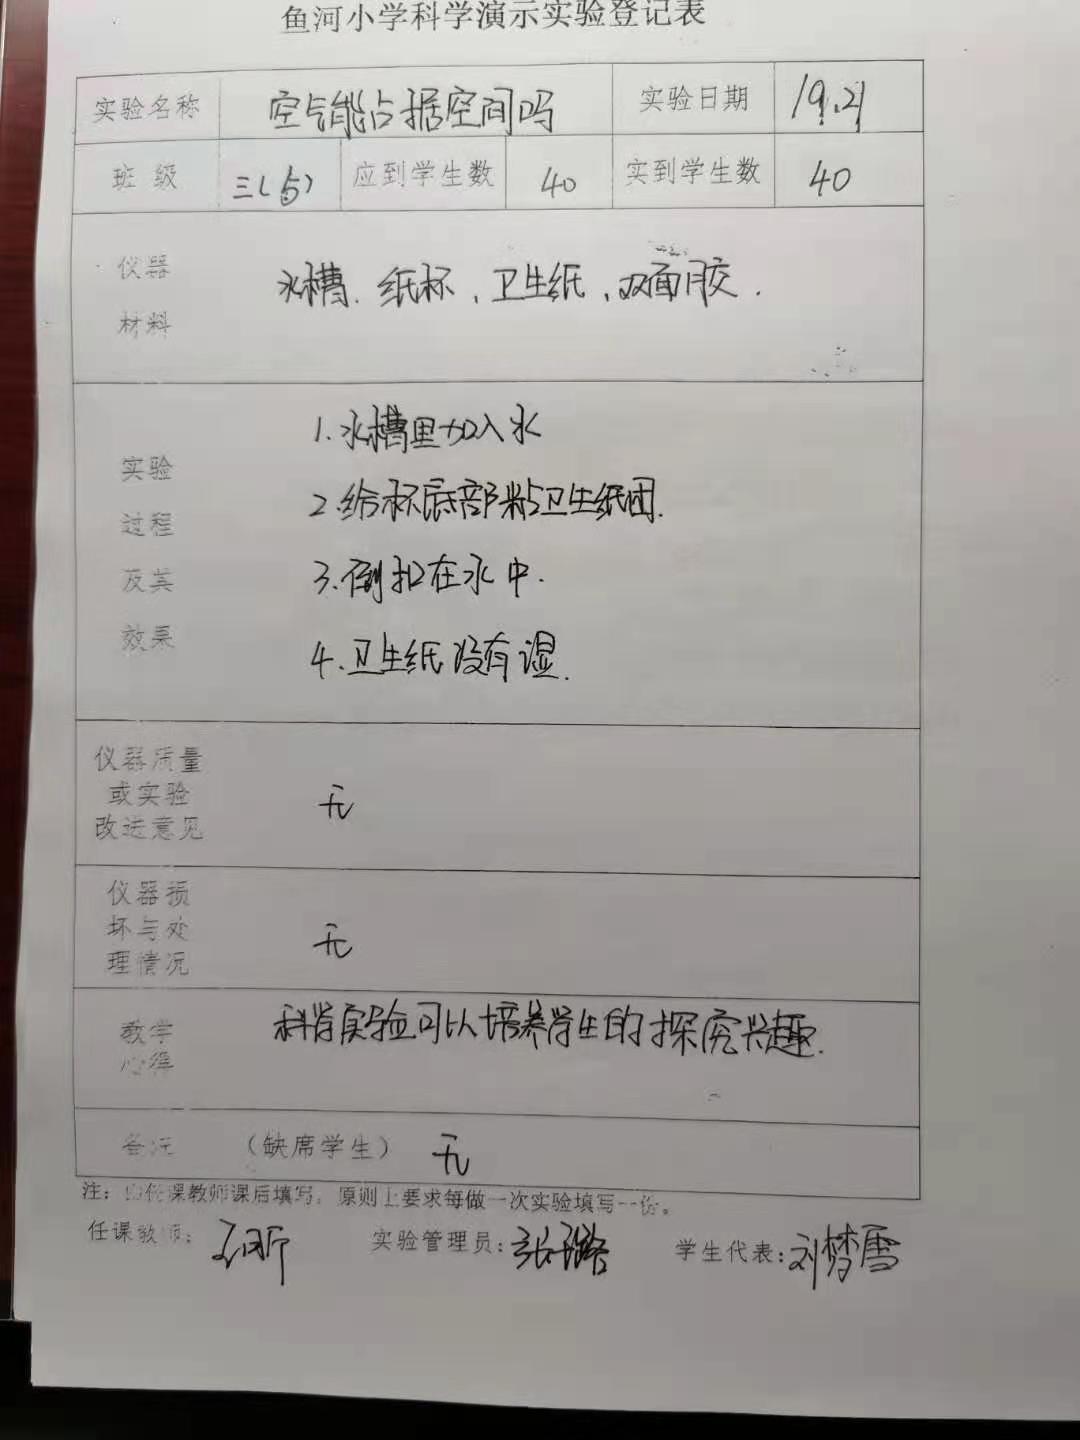 鱼河小学科学演示实验登记表
实验名称 空气能占据空间吗 实验日期 19.21
班 级 三(5) 应到学生数 40 实到学生数 40
仪器
材料
水槽、纸杯、卫生纸、双面胶.
实验
过程
及其
效果
1.水槽里加入水
2.给杯底部粘卫生纸团.
3.倒扣在水中.
4.卫生纸没有湿.
仪器质量
或实验
改进意见
无
仪器损
坏与处
理情况
无
教学
心得
科学实验可以培养学生的探究兴趣.
备注 (缺席学生) 无
注:由任课教师课后填写,原则上要求每做一次实验填写一份。
任课教师: 实验管理员:张璐 学生代表:刘梦雪